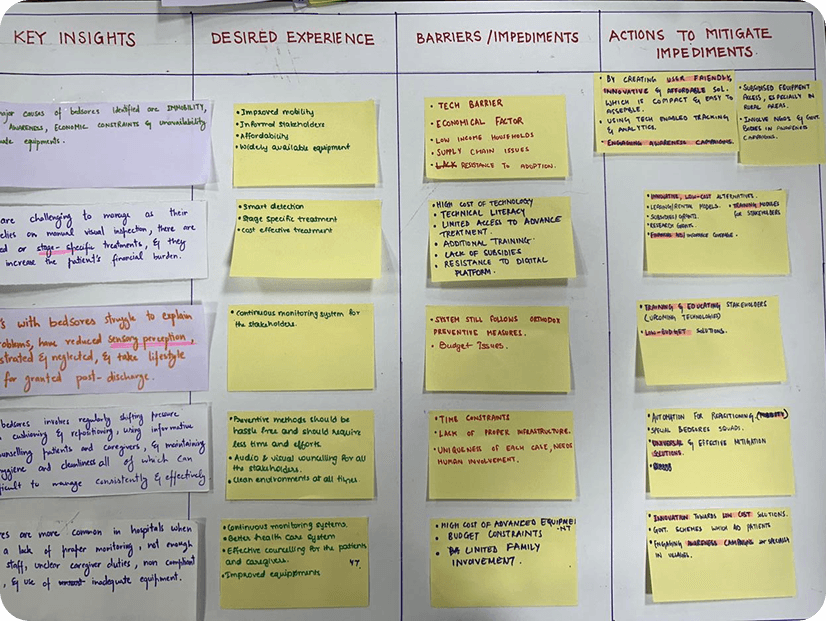 KEY INSIGHTS
DESIRED EXPERIENCE
BARRIERS/IMPEDIMENTS
ACTIONS TO MITIGATE
IMPEDIMENTS.
major causes of bedsores identified are IMMOBILITY,
AWARENESS, ECONOMIC CONSTRAINTS & Unavailability
equipments.
• Improved mobility
• Informed stakeholders
• Affordability
• Widely available equipment
• TECH BARRIER
• ECONOMICAL FACTOR
• LOW INCOME HOUSEHOLDS
• SUPPLY CHAIN ISSUES
• LACK RESISTANCE TO ADOPTION.
• BY CREATING USER FRIENDLY,
INNOVATIVE & AFFORDABLE SOL.
WHICH IS COMPACT & EASY TO
ASSEMBLE.
• USING TECH ENABLED TRACKING
& ANALYTICS.
• ENGAGING AWARENESS CAMPAIGNS.
• SUBSIDISED EQUIPMENT
ACCESS, ESPECIALLY IN
RURAL AREAS.
• INVOLVE NGOS & GOVT.
BODIES IN AWARENESS
CAMPAIGNS.
are challenging to manage as their
relies on manual visual inspection, there are
or stage-specific treatments, & they
increase the patient's financial burden.
• Smart detection
• Stage specific treatment
• Cost effective treatment
• HIGH COST OF TECHNOLOGY
• TECHNICAL LITERACY
• LIMITED ACCESS TO ADVANCE
TREATMENT.
• ADDITIONAL TRAINING.
• LACK OF SUBSIDIES
• RESISTANCE TO DIGITAL
PLATFORM.
• INNOVATIVE, LOW-COST ALTERNATIVES.
• LEASING/RENTAL MODELS. • TRAINING MODULES
• SUBSIDIES/GRANTS. FOR STAKEHOLDERS
• RESEARCH GRANTS.
• FINANCIAL AID/INSURANCE COVERAGE.
with bedsores struggle to explain
problems, have reduced sensory perception,
& neglected, & take lifestyle
for granted post-discharge.
• Continuous monitoring system for
the stakeholders.
• SYSTEM STILL FOLLOWS ORTHODOX
PREVENTIVE MEASURES.
• Budget Issues.
• TRAINING & EDUCATING STAKEHOLDERS
(UPCOMING TECHNOLOGIES)
• LOW-BUDGET SOLUTIONS.
bedsores involves regularly shifting pressure
cushioning & repositioning, using informative
counselling patients and caregivers, & maintaining
hygiene and cleanliness all of which can
difficult to manage consistently & effectively
• Preventive methods should be
hassle free and should require
less time and efforts.
• Audio & visual councelling for all
the stakeholders.
• Clean environments at all times.
• TIME CONSTRAINTS
• LACK OF PROPER INFRASTRUCTURE.
• UNIQUENESS OF EACH CASE, NEEDS
HUMAN INVOLVEMENT.
• AUTOMATION FOR REPOSITIONING.
• SPECIAL BEDSORES SQUADS.
• UNIVERSAL & EFFECTIVE MITIGATION
SOLUTIONS.
are more common in hospitals when
a lack of proper monitoring, not enough
staff, unclear caregiver duties, non compliant
, & use of inadequate equipment.
• Continuous monitoring systems.
• Better health care system
• Effective councelling for the patients
and caregivers.
• Improved equippments
• HIGH COST OF ADVANCED EQUIPMENT
• BUDGET CONSTRAINTS
• LIMITED FAMILY
INVOLVEMENT.
• INNOVATION TOWARDS LOW COST SOLUTIONS.
• GOVT. SCHEMES WHICH AID PATIENTS
• ENGAGING AWARENESS CAMPAIGNS
IN VILLAGES.